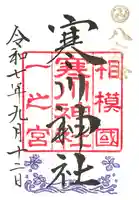 八方除
寒川神社
相模國
一之宮
寒川神社
令和七年九月十二日